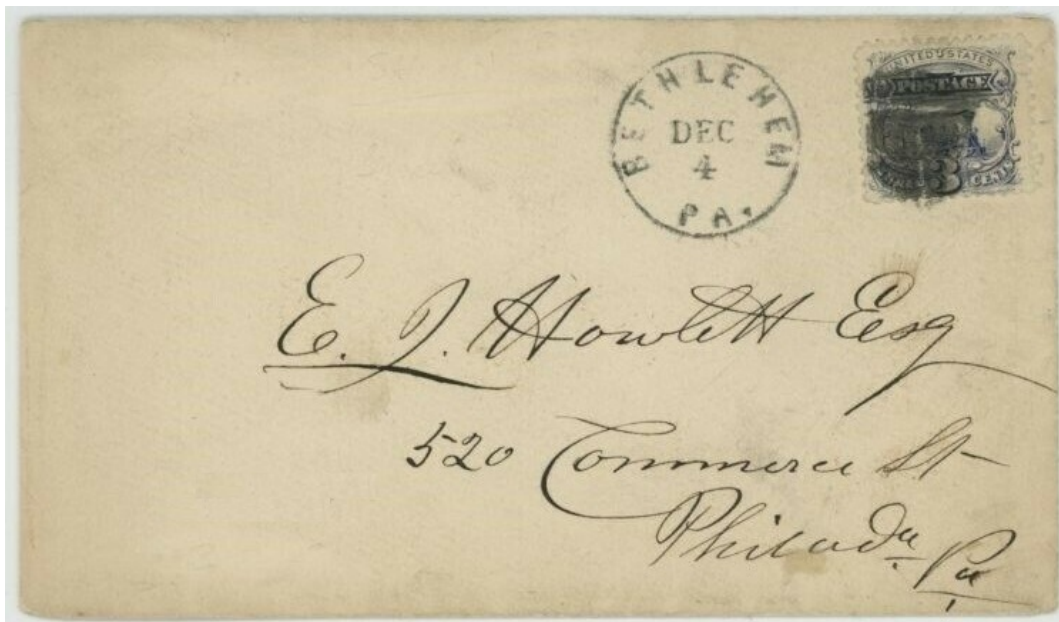 BETHLEHEM
DEC
4
PA.
UNITED STATES
POSTAGE
3 CENTS
E. J. Howlett Esq
520 Commerce St
Philada Pa